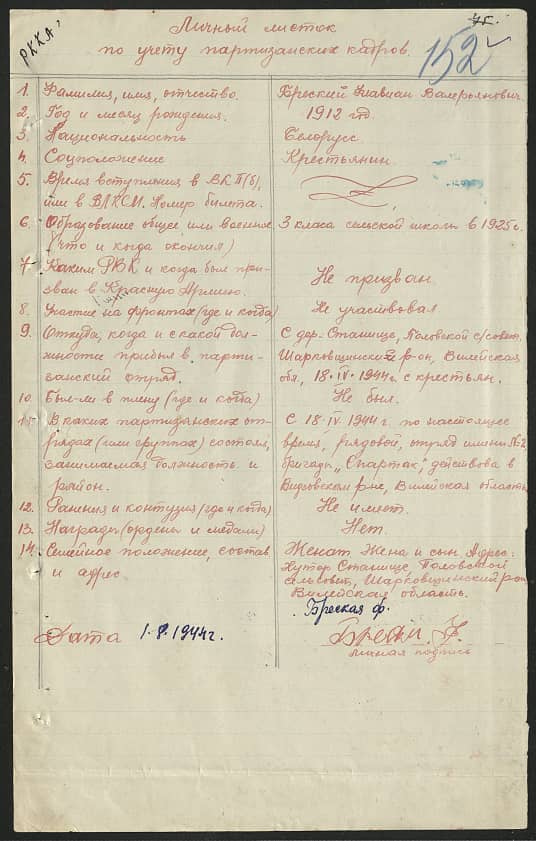 РККА
152
Личный листок
по учету партизанских кадров.
1. Фамилия, имя, отчество.
Бреский Флавиан Валерьянович.
2. Год и месяц рождения.
1912 год.
3. Национальность
Белорусс
4. Соцположение
Крестьянин.
5. Время вступления в ВКП(б),
или в ВЛКСМ. Номер билета.
6. Образование общее или военное
(что и когда окончил)
3 класа сельской школы в 1925 г.
7. Каким РВК и когда был при-
зван в Красную Армию.
Не призван
8. Участие на фронтах (где и когда)
Не участвовал
9. Откуда, когда и с какой дол-
жности прибыл в парти-
занский отряд.
С дер. Станище, Половской с/совет,
Шарковщинский р-он, Вилейская
обл., 18.IV.1944г. с крестьян.
10. Был-ли в плену (где и когда)
Не был.
11. В каких партизанских от-
рядах (или группах) состоял,
занимаемая должность и
район.
С 18.IV.1944г. по настоящее
время, рядовой, отряд имени №2,
бригады "Спартак", действова в
р-не, Вилейская область
12. Ранения и контузия (где и когда)
Не имеет.
13. Награды (ордены и медали)
Нет.
14. Семейное положение, состав
и адрес.
Женат. Жена и сын. Адрес:
Хутор Станище, Половской
сельсовит, Шарковщинский р-он
Вилейская область.
Бреская ф.
Дата 1.8.1944г.
личная подпись